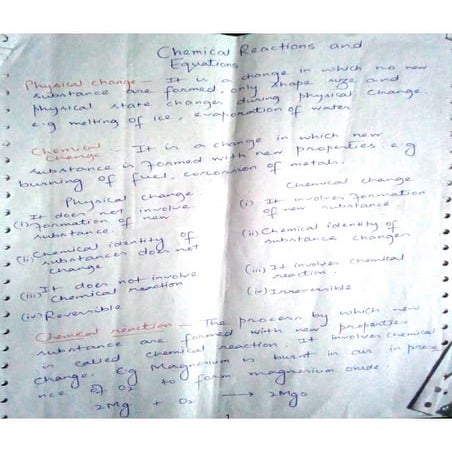 Chemical Reactions and
Equations
Physical change - It is a change in which no new
substance are formed. only shape size and
physical state changes during physical change.
e.g melting of ice, evaporation of water
Chemical change - It is a change in which new
substance is formed with new properties. e.g
burning of fuel, corrosion of metals.
Physical change
(i) It does not involve
formation of new
substance.
(ii) Chemical identity of
substances does not
change
(iii) It does not involve
Chemical reaction
(iv) Reversible
Chemical change
(i) It involves formation
of new substance.
(ii) Chemical identity of
substance changes
(iii) It involves chemical
reaction.
(iv) Irreversible
Chemical reaction - The process by which new
substance are formed with new properties
is called chemical reaction. It involves chemical
change. Eg Magnesium is burnt in air in prese
nce of O2 to form magnesium oxide.
2Mg + O2 → 2MgO